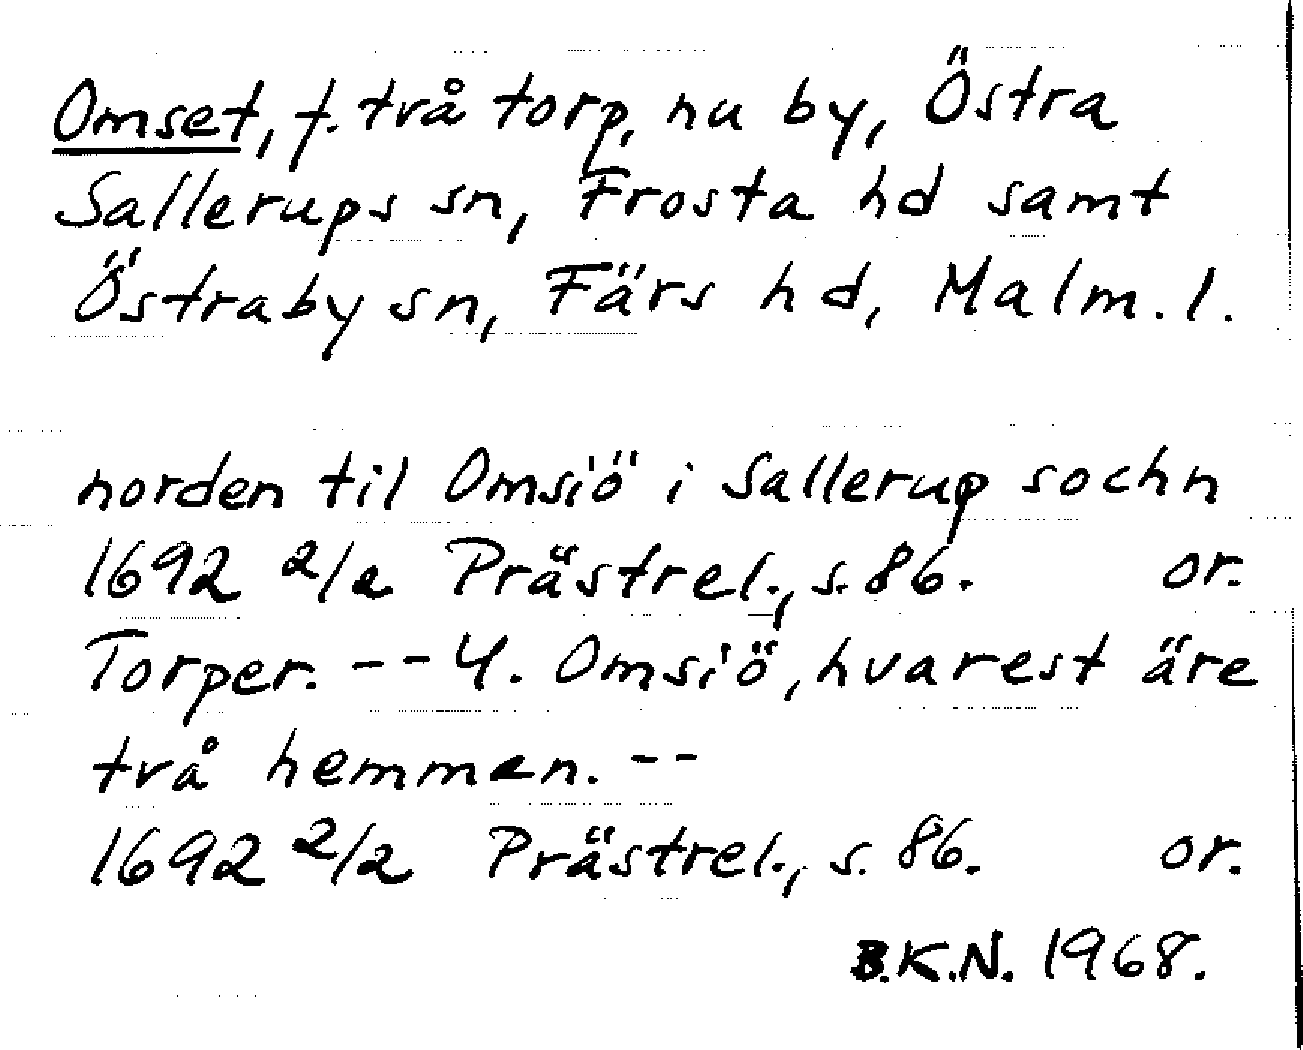 Omset, f. två torp, nu by, Östra
Sallerups sn, Frosta hd samt
Östraby sn, Färs hd, Malm. l.
norden til Omsiö i Sallerup sochn
1692 2/2 Prästrel., s. 86. or.
Torper. -- 4. Omsiö, hvarest äre
två hemmen. --
1692 2/2 Prästrel., s. 86. or.
B.K.N. 1968.